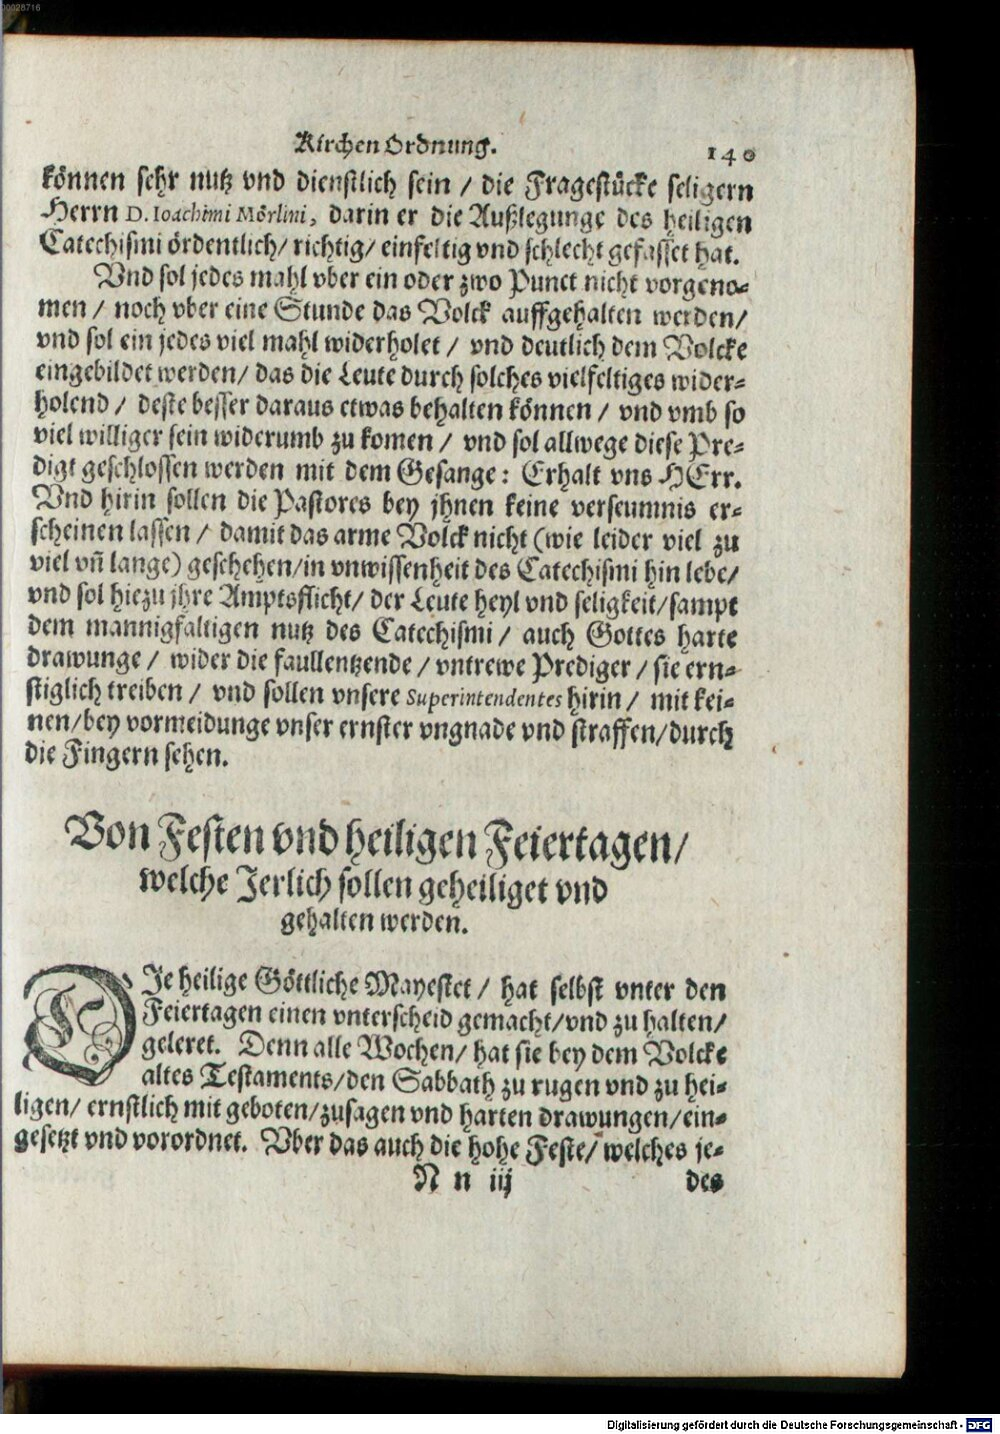 00028716
KirchenOrdnung.
140
können sehr nutz vnd dienstlich sein / die Fragestücke seligern
Herrn D. Ioachimi Mörlini, darin er die Außlegunge des heiligen
Catechismi ördentlich/ richtig/ einfeltig vnd schlecht gefasset hat.
Vnd sol jedes mahl vber ein oder zwo Punct nicht vorgeno=
men / noch vber eine Stunde das Volck auffgehalten werden/
vnd sol ein jedes viel mahl widerholet / vnd deutlich dem Volcke
eingebildet werden/ das die Leute durch solches vielfeltiges wider=
holend / deste besser daraus etwas behalten können / vnd vmb so
viel williger sein widerumb zu komen / vnd sol allwege diese Pre=
digt geschlossen werden mit dem Gesange: Erhalt vns HErr.
Vnd hirin sollen die Pastores bey jhnen keine verseumnis er=
scheinen lassen / damit das arme Volck nicht (wie leider viel zu
viel vñ lange) geschehen/in vnwissenheit des Catechismi hin lebe/
vnd sol hiezu jhre Amptsflicht/ der Leute heyl vnd seligkeit/sampt
dem mannigfaltigen nutz des Catechismi / auch Gottes harte
drawunge / wider die faullentzende / vntrewe Prediger / sie ern=
stiglich treiben / vnd sollen vnsere Superintendentes hirin / mit kei=
nen/bey vormeidunge vnser ernster vngnade vnd straffen/durch
die Fingern sehen.
Von Festen vnd heiligen Feiertagen/
welche Jerlich sollen geheiliget vnd
gehalten werden.
DJe heilige Göttliche Mayestet / hat selbst vnter den
Feiertagen einen vnterscheid gemacht/vnd zu halten/
geleret. Denn alle Wochen/ hat sie bey dem Volcke
altes Testaments/den Sabbath zu rugen vnd zu hei=
ligen/ ernstlich mit geboten/zusagen vnd harten drawungen/ein=
gesetzt vnd vorordnet. Vber das auch die hohe Feste/ welches je=
N n iij
des
Digitalisierung gefördert durch die Deutsche Forschungsgemeinschaft - DFG